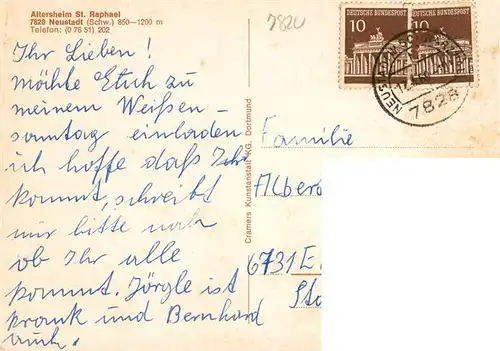 Altersheim St. Raphael
7828 Neustadt (Schw.) 850—1200 m
Telefon: (0 76 51) 202
7820
Ihr Lieben!
möchte Euch zu
meinem Weißen-
sonntag einladen
ich hoffe daß Ihr
kommt, schreibt
mir bitte noch
ob Ihr alle
kommt. Jörgle ist
krank und Bernhard
auch.
Cramers Kunstanstalt KG, Dortmund
DEUTSCHE BUNDESPOST
10
DEUTSCHE BUNDESPOST
10
7828
Familie
Albero
6731 E